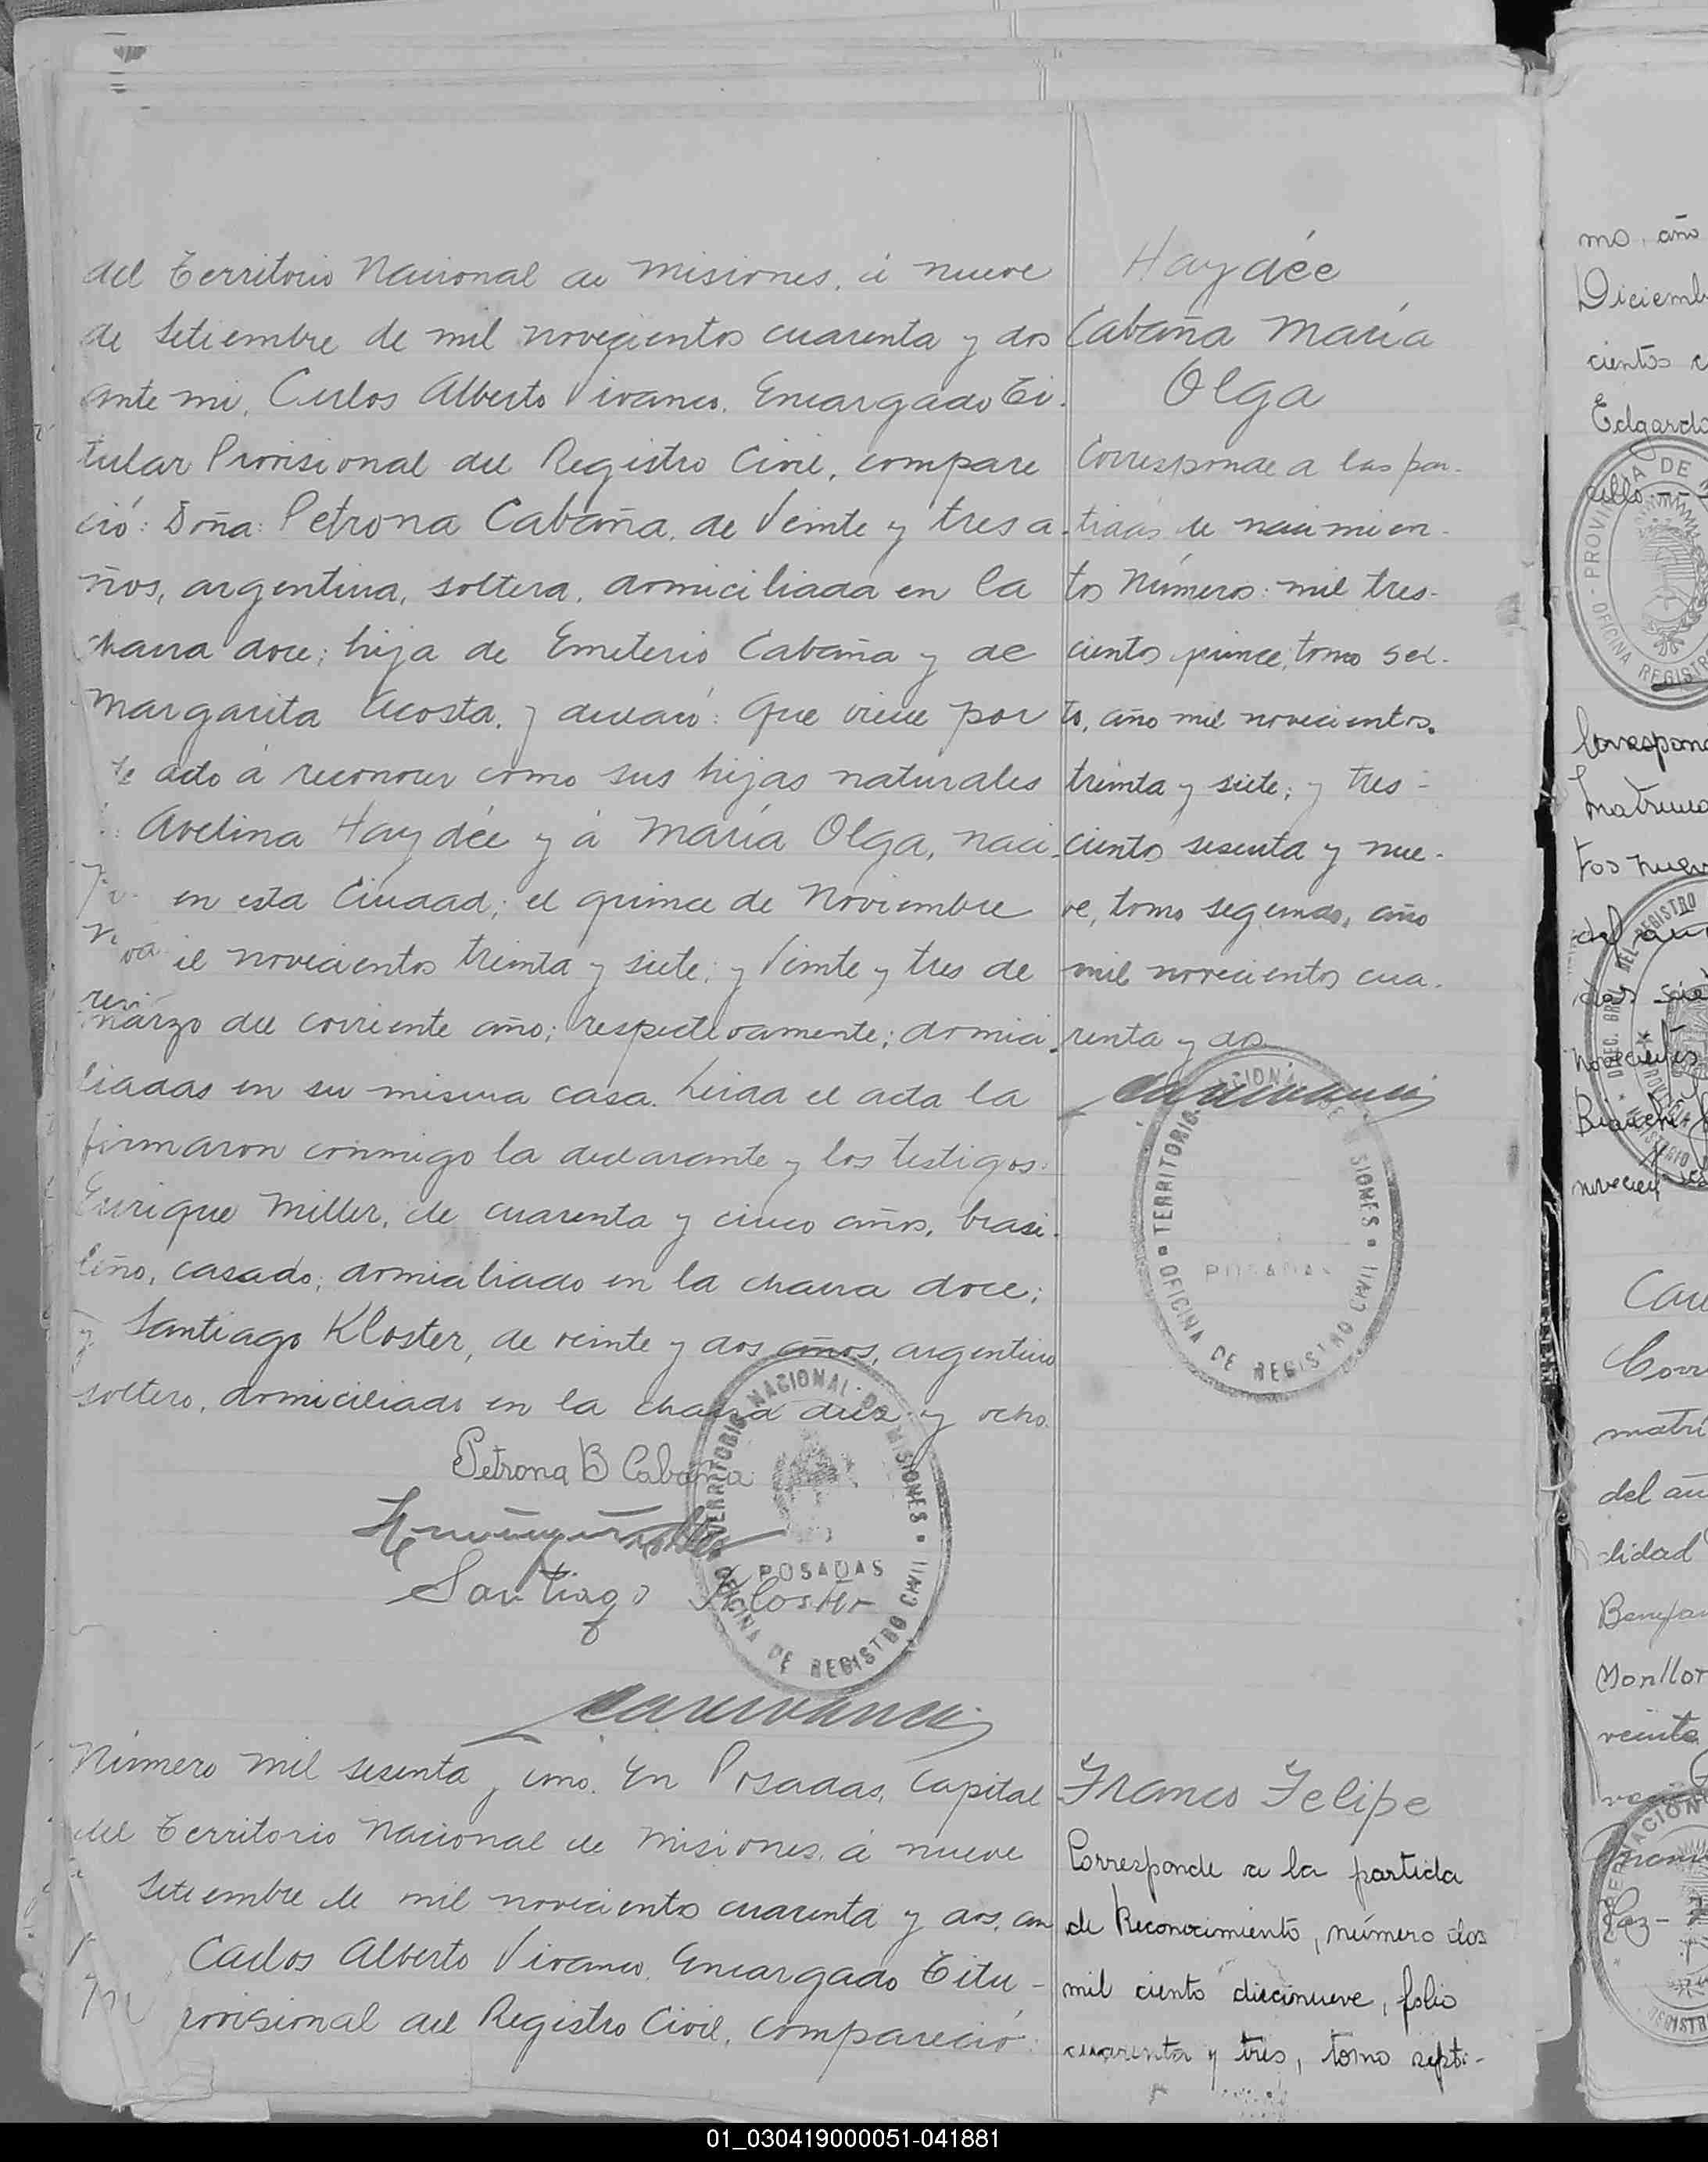 del Territorio Nacional de Misiones, á nueve
de Setiembre de mil novecientos cuarenta y dos
ante mi, Carlos Alberto Vivanco, Encargado Ti-
tular Provisional del Registro Civil, compare
ció: Doña: Petrona Cabaña, de Veinte y tres a-
ños, argentina, soltera, domiciliada en la
chacra doce; hija de Emeterio Cabaña y de
Margarita Acosta, y declaró: Que viene por
te acto á reconocer como sus hijas naturales
Avelina Haydée y á María Olga, naci-
en esta Ciudad; el quince de Noviembre
il novecientos treinta y siete; y Veinte y tres de
marzo del corriente año; respectivamente; domici-
liadas en su misma casa. Leida el acta la
firmaron conmigo la declarante y los testigos:
Enrique Miller, de cuarenta y cinco años, brasi-
leño, casado, domiciliado en la chacra doce;
y Santiago Kloster, de veinte y dos años, argentino
soltero, domiciliado en la chacra diez y ocho.
Petrona B Cabaña
Santiago Kloster
TERRITORIO NACIONAL DE MISIONES
POSADAS
OFICINA DE REGISTRO CIVIL
Haydée
Cabaña María
Olga
Corresponde a las par-
tidas de nacimien-
tos Números: mil tres-
cientos quince, tomo sex-
to, año mil novecientos
treinta y siete; y tres-
cientos sesenta y nue-
ve, tomo segundo, año
mil novecientos cua-
renta y dos
TERRITORIO NACIONAL DE MISIONES
POSADAS
OFICINA DE REGISTRO CIVIL
Número mil sesenta y uno. En Posadas, Capital
del Territorio Nacional de Misiones, á nueve
Setiembre de mil novecientos cuarenta y dos, an
Carlos Alberto Vivanco, Encargado Titu-
rovisional del Registro Civil, compareció:
Franco Felipe
Corresponde a la partida
de Reconocimiento, número dos
mil ciento diecinueve, folio
cuarenta y tres, tomo septi-
mo, año
Diciemb
cientos c
Edgardo
PROVINCIA DE
OFICINA REGISTRO
Correspon
tos nuev
novecientos
Bianchi
novecien
Corr
matri
del añ
lidad
Monllor
veinte
01_030419000051-041881